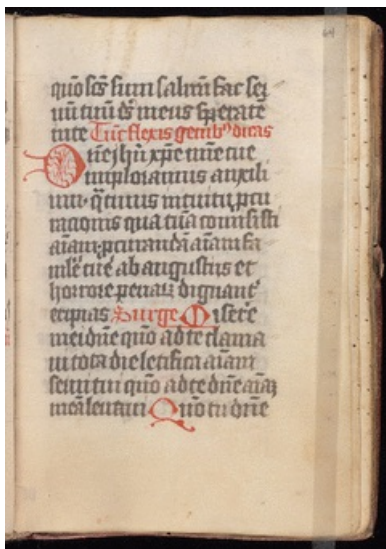 64
quō scs sum saluū fac ser
uū tuū ds meus sperātē
in te Tūc flexis genibꝰ dicas
Dn̄e ihū xp̄e īmē tue
imploramus auxili
um· q̄tinus intuitu ꝓcu
rationis qua tuā
aīam ꝓcurandā aīam fa
ml̄e tue ab angustiis et
horrore penaꝝ dignant᷑
eripias Surge Misere
mei dn̄e quō ad te clama
ui tota die letifica aīam
serui tui quō ad te dn̄e aīaꝫ
meā leuaui Quō tu dn̄e